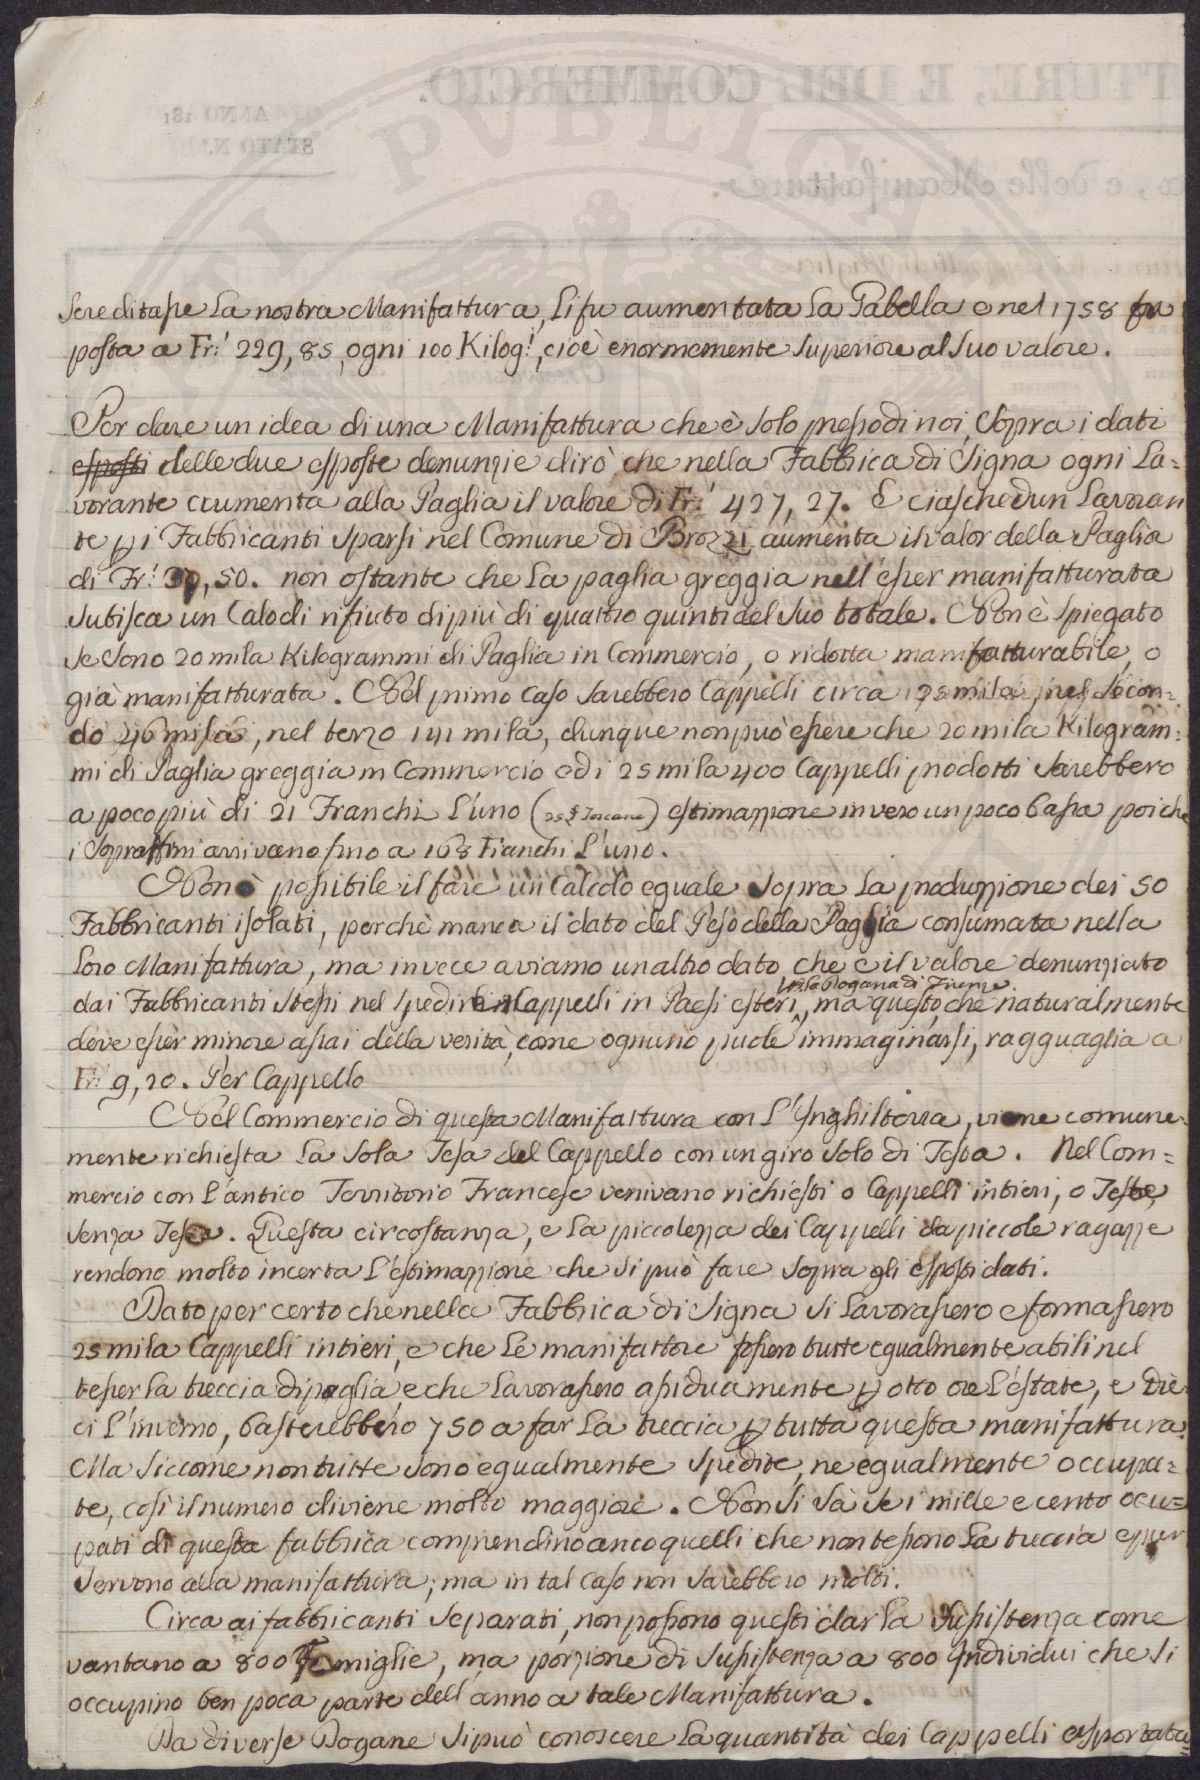 screditasse la nostra Manifattura, li fu aumentata la Gabella e nel 1758 fu
posta a Fr.i 229,85 ogni 100 Kilog.i, cioè enormemente superiore al suo valore.
Per dare un idea di una Manifattura che è solo presso di noi, sopra i dati
esposti delle due esposte denunzie dirò che nella Fabbrica di Signa ogni La=
vorante aumenta alla Paglia il valore di Fr.i 427,27. E ciaschedun Lavoran
te p i Fabbricanti sparsi nel Comune di Brozzi aumenta il valor della Paglia
di Fr.i ,50. non ostante che la paglia greggia nell'esser manifatturata
subisca un Calo di rifiuto di più di quattro quinti del suo totale. Non è spiegato
se sono 20 mila Kilogrammi di Paglia in Commercio, o ridotta manifatturabile, o
già manifatturata. Nel primo caso sarebbero Cappelli circa mila, nel secon=
do 46 mila, nel terzo 141 mila, dunque non può essere che 20 mila Kilogram=
mi di Paglia greggia in Commercio e di 25 mila 400 Cappelli prodotti sarebbero
a poco più di 21 Franchi l'uno (25 £ Toscane) estimazzione invero un poco bassa poiche
i sopraffini arrivano fino a 168 Franchi l'uno.
Non è possibile il fare un Calcolo eguale sopra la produzzione dei 50
Fabbricanti isolati, perchè manca il dato del Peso della Paglia consumata nella
loro Manifattura, ma invece aviamo un altro dato che è il valore denunziato
alla Dogana di Firenze
dai Fabbricanti stessi nel spedire i Cappelli in Paesi esteri, ma questo che naturalmente
deve esser minore assai della verità, come ognuno puole immaginarsi, ragguaglia a
Fr.i 9,20. Per Cappello
Nel Commercio di questa Manifattura con l'Inghilterra, viene comune=
mente richiesta la sola Tesa del Cappello con un giro solo di Testa. Nel Com=
mercio con l'antico Territorio Francese venivano richiesti o Cappelli intieri, o Teste
senza Tesa. Questa circostanza, e la piccolezza dei Cappelli da piccole ragazze
rendono molto incerta l'estimazzione che si può fare sopra gli esposti dati.
Dato per certo che nella Fabbrica di Signa si lavorassero e formassero
25 mila Cappelli intieri, e che le manifattore fossero tutte egualmente abili nel
tesser la treccia di paglia e che lavorassero assiduamente p otto ore l'estate, e die=
ci l'inverno, basterebbero 750 a far la treccia p tutta questa manifattura.
Ma siccome non tutte sono egualmente spedite, ne egualmente occupa=
te, così il numero diviene molto maggiore. Non si sà se i mille e cento occu=
pati di questa fabbrica comprendino anco quelli che non tessono la treccia e pur
servono alla manifattura; ma in tal caso non sarebbero molti.
Circa ai fabbricanti separati, non possono questi dar la sussistenza come
vantano a 800 Famiglie, ma porzione di sussistenza a 800 Individui che si
occupino ben poca parte dell'anno a tale Manifattura.
Da diverse Dogane si può conoscere la quantità dei Cappelli esportata